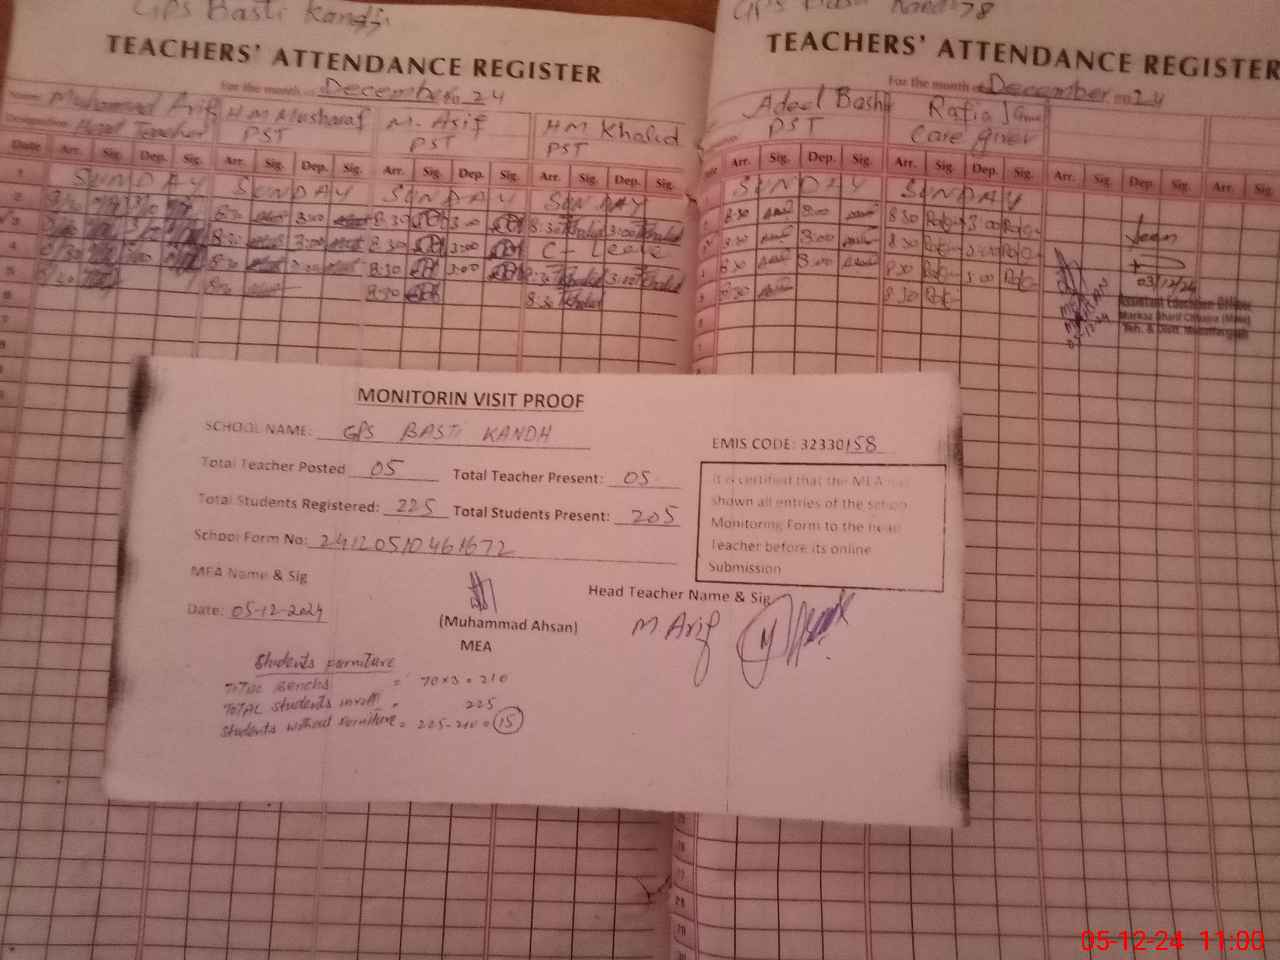 GPS Basti Kandh
TEACHERS' ATTENDANCE REGISTER
For the month of December 20 24
Name: Muhammad Arif HM Musharaf M. Asif HM Khalid
Designation: Head Teacher PST PST PST
Date Arr. Sig. Dep. Sig. Arr. Sig. Dep. Sig. Arr. Sig. Dep. Sig. Arr. Sig. Dep. Sig.
1 SUNDAY SUNDAY SUNDAY SUNDAY
2 8:30 3:00 8:30 3:00 8:30 Khalid 3:00 Khalid
3 8:30 3:00 8:30 3:00 C - Leave
4 8:30 3:00 8:30 3:00 8:30 Khalid 3:00 Khalid
5 8:30 8:30 8:30 Khalid
6
7
8
GPS Basti Kandh 78
TEACHERS' ATTENDANCE REGISTER
For the month of December 2024
Adeel Bashir Rafia
PST Care giver
Arr. Sig. Dep. Sig. Arr. Sig. Dep. Sig. Arr. Sig. Dep. Sig. Arr. Sig.
SUNDAY SUNDAY
8:30 3:00 8:30 3:00
8:30 3:00 8:30 3:00
8:30 3:00 8:30 3:00
8:30 8:30
03/12/24
Assistant Education Officer
MONITORIN VISIT PROOF
SCHOOL NAME: GPS BASTI KANDH
EMIS CODE: 32330158
Total Teacher Posted 05 Total Teacher Present: 05
Total Students Registered: 225 Total Students Present: 205
School Form No: 24120510461672
It is certified that the MEA has
shown all entries of the school
Monitoring Form to the head
Teacher before its online
Submission
MEA Name & Sig
Head Teacher Name & Sig
Date: 05-12-2024
(Muhammad Ahsan)
MEA
M Arif
Students furniture
Total Benchs = 70×3 = 210
Total students inroll = 225
Students without furniture = 225-210 = 15
05-12-24 11:00